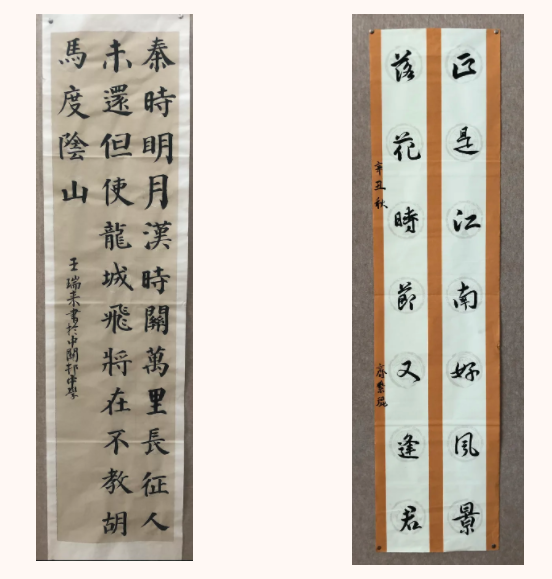 秦時明月漢時關萬里長征人
未還但使龍城飛將在不教胡
馬度陰山
王瑞來書於中關村中學
正是江南好風景
落花時節又逢君
辛丑秋